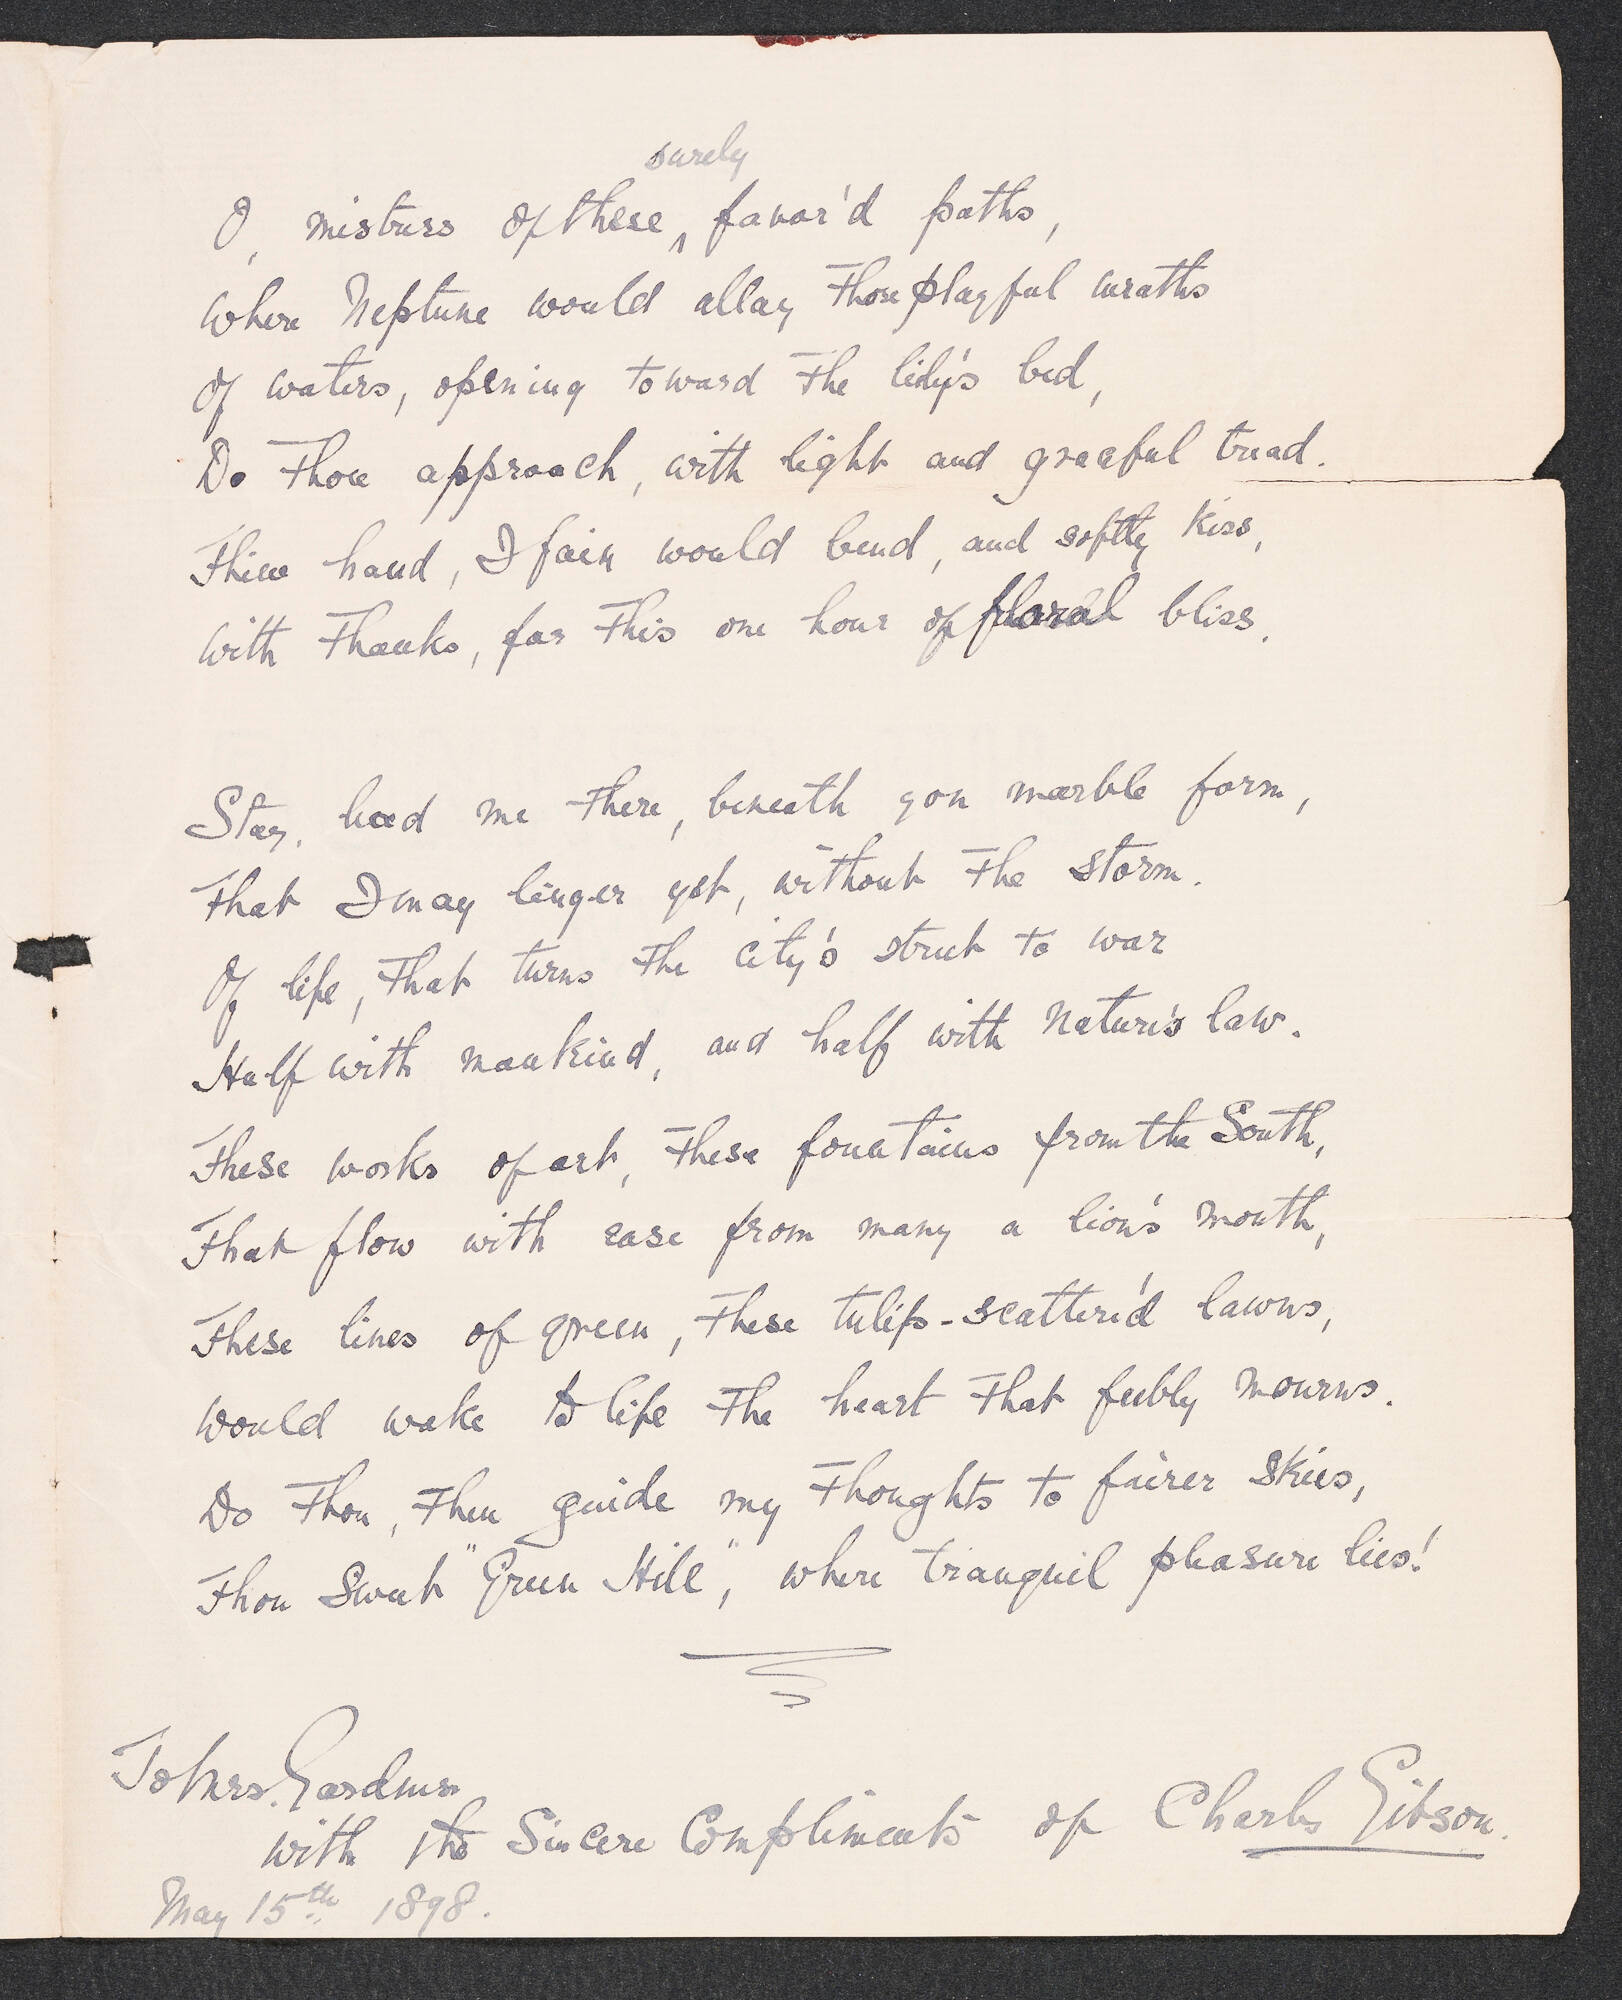 surely
O, mistress of these ^ favor'd paths,
Where Neptune would allay those playful wraths
Of waters, opening toward the lily's bed,
Do Thou approach, with light and graceful tread.
Thine hand, I fain would bend, and softly kiss,
With Thanks, for This one hour of floral bliss.
Stay, lead me There, beneath yon marble form,
That I may linger yet, without The storm.
Of life, That turns The city's street to war
Half with mankind, and half with Nature's law.
These works of art, These fountains from the South,
That flow with ease from many a lion's mouth,
These lines of green, These tulip-scatter'd lawns,
Would wake to life The heart That feebly mourns.
Do Thou, Then guide my Thoughts to fairer skies,
Thou Sweet "Green Hill", where tranquil pleasure lies!
To Mrs. Gardner
with the Sincere Compliments of Charles Gibson.
May 15th 1898.